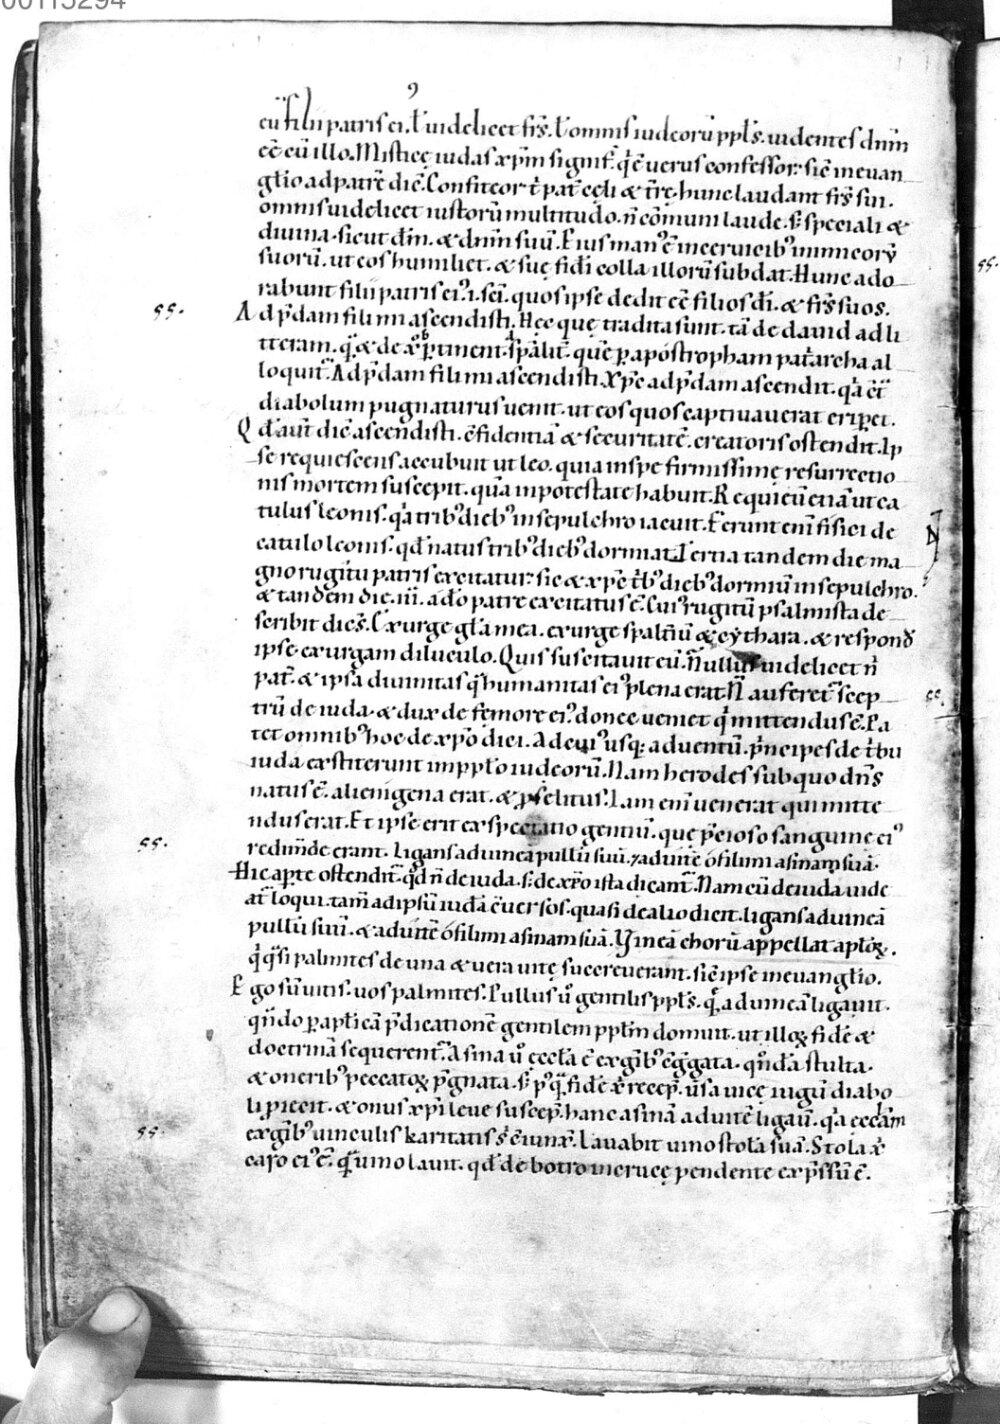 00115294
eu͂ filii patris ei᾿. ł uidelicet frs̄. ł omnis iudeorū ppls̄. uidentes dn̄m
eē cū illo. Mistice iudas xp̄m signif̄. q̄ ē uerus confessor: sic̄ in euan
glīo ad patrē dic̄. Confiteor t̄ pat̄ cęli & tr̄ę. hunc laudant frs̄ sui.
omnis uidelicet iustorū multitudo. n̄ cōmuni laude. s; speciali &
diuina. sicut dm̄. & dn̄m suū. Eius man᾿ ē in ceruicib᾿ inimicorū
suorū. ut eos humiliet. & suę fidi colla illorū subdat. Hunc ado
rabunt filii patris ei᾿. i. sc̄i. quos ipse dedit eē filios dī. & frs̄ suos.
Ad p̄dam fili mi ascendisti. Hęc quę tradita sunt. tā de dauid ad li
tteram. q̄ & de xp̄o p̱tinent. sp̄alit̄. quē p̱ apostropham pat̄archa al
loquit̄. Ad p̄dam fili mi ascendisti. Xp̄c ad p̄dam ascendit. q̇a c̄t̄
diabolum pugnaturus uenit. ut eos quos captiuauerat erip̱et.
Qd̄ aut̄ dic̄ ascendisti. c̄fidentiā & securitatē. creatoris ostendit. Ip
se requiescens accubuit ut leo. quia in spe firmissimę resurrectio
nis mortem suscepit. quā in potestate habuit. Requieuit etiā ut ca
tulus leonis. q̇a trib᾿ dieb᾿ in sepulchro iacuit. Ferunt eni᷑ fisici de
catulo leonis. qd̄ natus trib᾿ dieb᾿ dormiat. Tertia tandem die ma
gno rugitu patris excitatur: sic & xp̄c t̄b᾿ dieb᾿ dormiuit in sepulchro.
& tandem die. iii. a dō patre excitatus ē. Cui᾿ rugitū psalmista de
scribit dicēs. Exurge glā mea. exurge spaltn̄ū & cythara. & respond̄
ipse exurgam diluculo. Quis suscitauit eū. Nullus uidelicet n̄
pat̄. & ipsa diuinitas q̄ humanitas ei᾿ plena erat. N̄ auferet᷑ scep
trū de iuda. & dux de femore ei᾿. donec ueniet q̇ mittendus ē. Pa
tet omnib᾿ hoc de xp̄o dici. Ad cui᾿ usq; aduentū. p̄ncipes de t̄bu
iuda exstiterunt in ppłō iudeorū. Nam herodes sub quo dn̄s
natus ē. alienigena erat. & p̱selitus. Iam eni᷑ uenerat qui mitte
ndus erat. Et ipse erit exspectatio gentiū. quę p̄cioso sanguine ei᾿
redimēde erant. Ligans ad uineā pullū suū. & ad uitē ó fili mi asinam suā.
Hic ap̱te ostendit᷑. qd̄ n̄ de iuda. s; de xp̄o ista dicant᷑. Nam cū de iuda uide
at᷑ loqui. tam̄ ad ipsū iudā c̄uersos. quasi de alio dicit. ligans ad uineā
pullū suū. & ad uitē ó fili mi asinam suā. Vineā chorū appellat aplōꝝ.
q̇ q̄si palmites de una & uera uite succreuerant. sic̄ ipse in euanglīo.
Ego sū uitis. uos palmites. Pullus ū gentilis ppls̄. q̄ ad uineā ligauit.
qn̄do p̱ aplicā p̄dicationē gentilem ppl̄m domuit. ut illoꝝ fidē &
doctrinā sequerent᷑. Asina ū eccl̄a ē ex gn̄ib᾿ c̄g̱gata. qn̄dā stulta.
& onerib᾿ peccatoꝝ p̄gnata. s; p᾿q̄ fidē xī recep̄. uersa uice iugū diabo
li piecit. & onus xp̄i leue suscep̄. hanc asinā ad uitē ligauit. q̇a eccl̄am
ex gn̄ib᾿ uinculis karitatis s᷑ c̄iunx̄. Lauabit uino stolā suā. Stola xī
caro ei᾿ ē. q̄ uino lauit. qd̄ de botro in cruce pendente exp̄ssū ē.